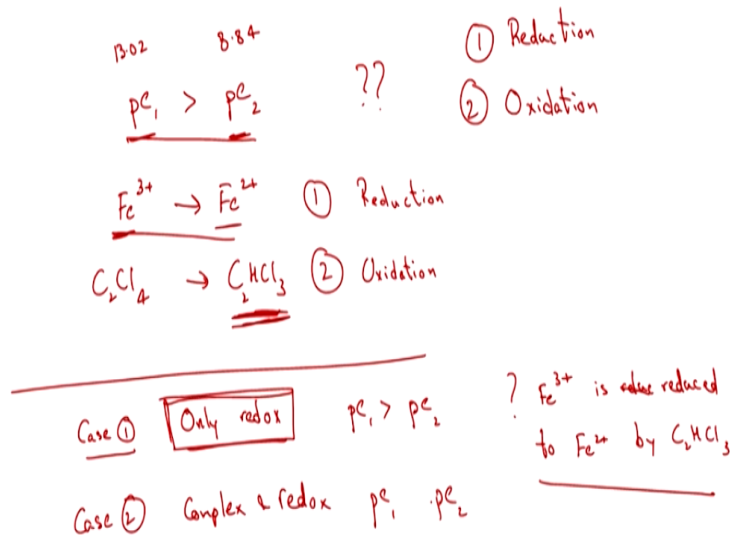 13.02 8.84
pe₁ > pe₂ ??
① Reduction
② Oxidation
Fe³⁺ → Fe²⁺ ① Reduction
C₂Cl₄ → C₂HCl₃ ② Oxidation
Case ① Only redox pe₁ > pe₂
? Fe³⁺ is reduced
to Fe²⁺ by C₂HCl₃
Case ② Complex & redox pe₁ . pe₂